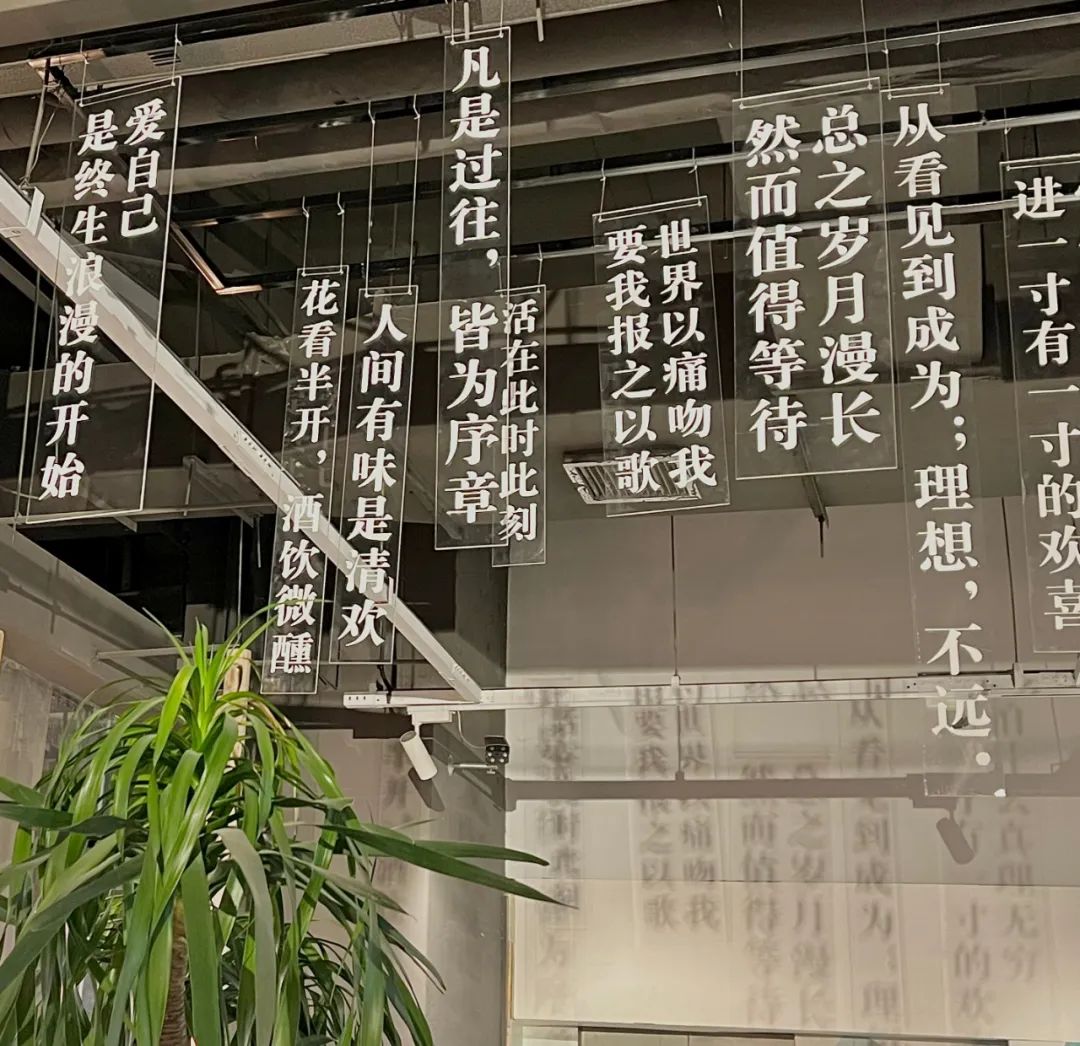 爱自己
是终生浪漫的开始
花看半开，酒饮微醺
人间有味是清欢
凡是过往，皆为序章
活在此时此刻
世界以痛吻我
要我报之以歌
总之岁月漫长
然而值得等待
从看见到成为；理想，不远.
进一寸有一寸的欢喜